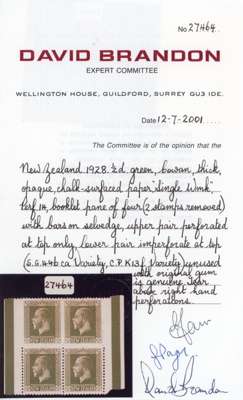 No. 27464
DAVID BRANDON
EXPERT COMMITTEE
WELLINGTON HOUSE, GUILDFORD, SURREY GU3 1DE.
Date 12-7-2001
The Committee is of the opinion that the
New Zealand 1928 ½d. green, Cowan, thick,
opaque, chalk-surfaced paper, single wmk.
perf. 14, booklet pane of four (2 stamps removed)
with bars on selvedge, upper pair perforated
at top only, lower pair imperforate at top
(S.G. 446 ca Variety, C.P. K13 Variety) unused
with original gum
is genuine, tear
above right hand
perforations.
27464
David Brandon